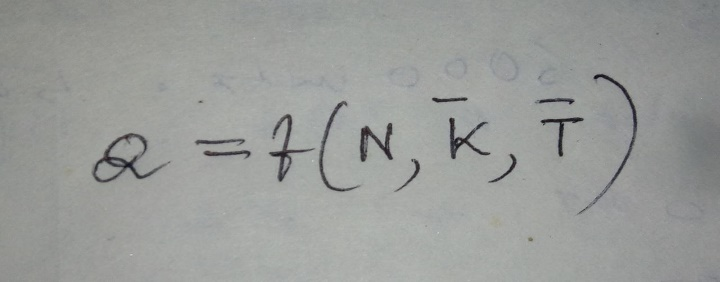 Q = f(N, K̄, T̄)